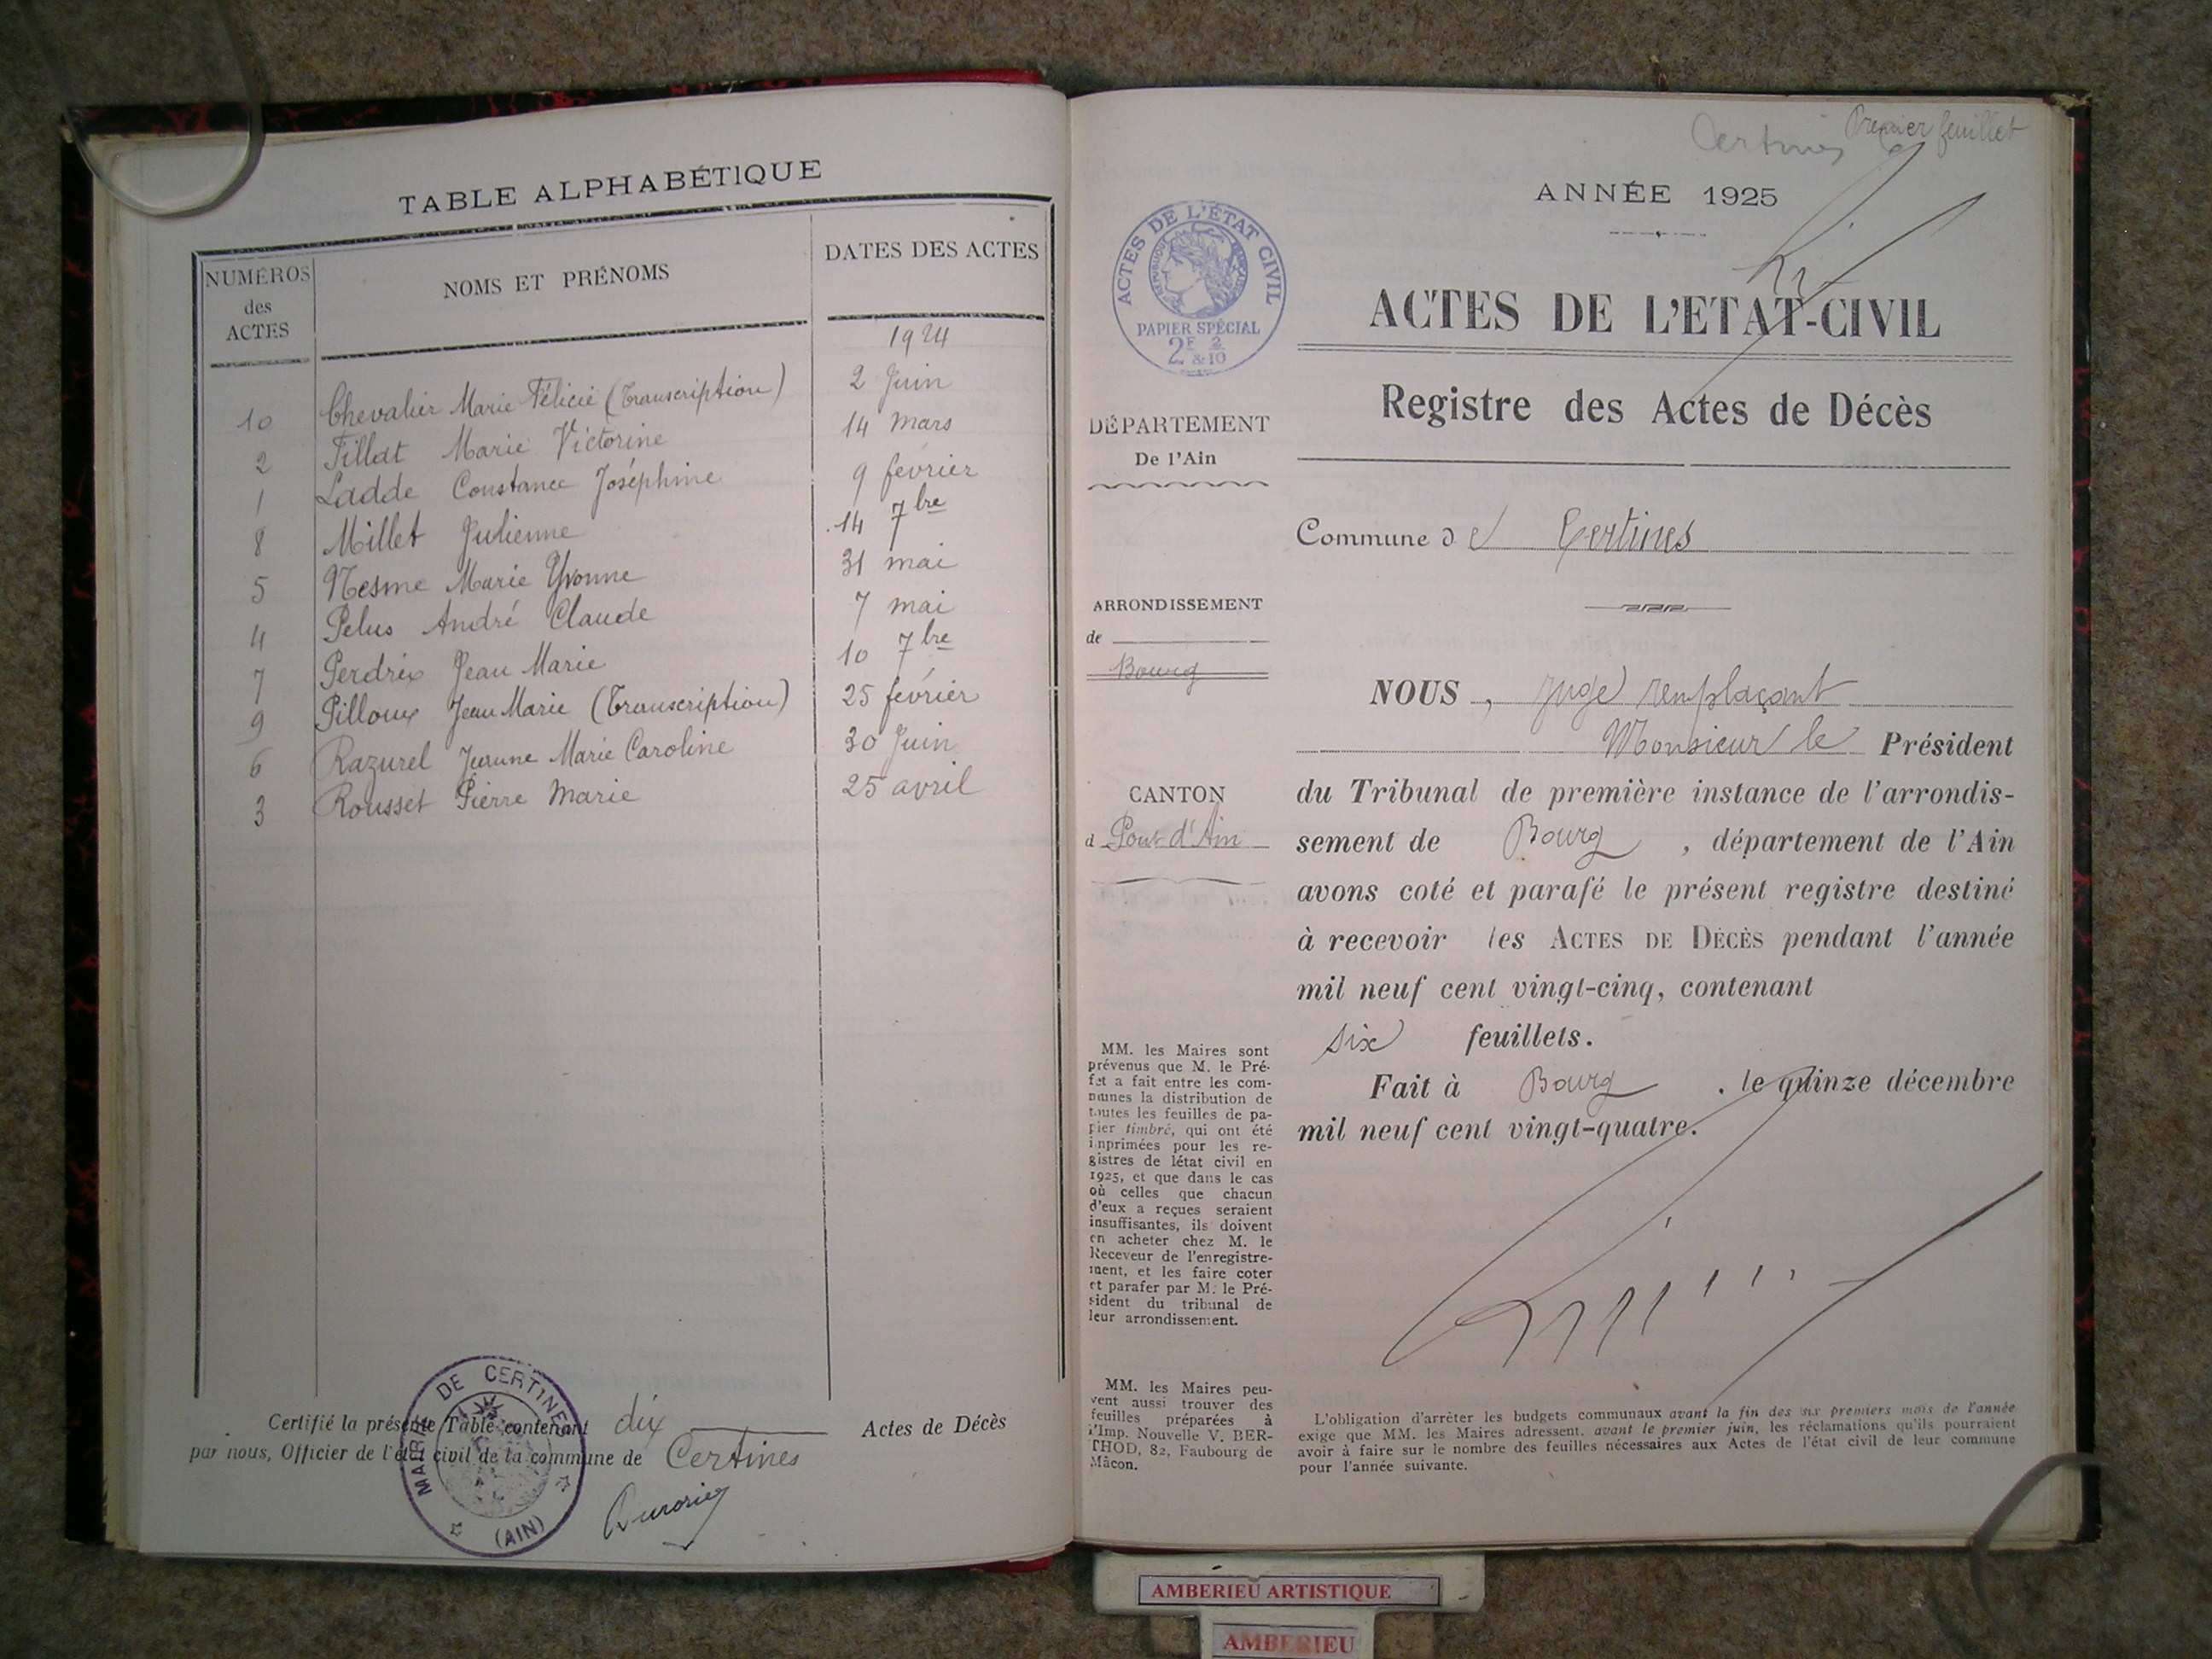 TABLE ALPHABÉTIQUE
NUMÉROS des ACTES
NOMS ET PRÉNOMS
DATES DES ACTES
1924
10 Chevalier Marie Félicie (Transcription) 2 Juin
2 Tillat Marie Victorine 14 mars
1 Ladde Constance Joséphine 9 février
8 Millet Julienne 14 7bre
5 Nesme Marie Yvonne 31 mai
4 Pelus André Claude 7 mai
7 Perdrix Jean Marie 10 7bre
9 Pilloux Jean Marie (Transcription) 25 février
6 Razurel Marie Caroline 30 Juin
3 Rousset Pierre Marie 25 avril
Certifié la présente Table contenant dix Actes de Décès
par nous, Officier de l'état civil de la commune de Certines
MAIRIE DE CERTINES
(AIN)
Certines
Premier feuillet
ANNÉE 1925
ACTES DE L'ÉTAT CIVIL
RÉPUBLIQUE FRANÇAISE
PAPIER SPÉCIAL
2F & 2/10
ACTES DE L'ETAT-CIVIL
Registre des Actes de Décès
DÉPARTEMENT
De l'Ain
Commune de Certines
ARRONDISSEMENT
de
Bourg
CANTON
d Pont d'Ain
NOUS, Juge remplaçant
Monsieur le Président
du Tribunal de première instance de l'arrondis-
sement de Bourg, département de l'Ain
avons coté et parafé le présent registre destiné
à recevoir les ACTES DE DÉCÈS pendant l'année
mil neuf cent vingt-cinq, contenant
six feuillets.
Fait à Bourg, le quinze décembre
mil neuf cent vingt-quatre.
MM. les Maires sont
prévenus que M. le Pré-
fet a fait entre les com-
munes la distribution de
toutes les feuilles de pa-
pier timbré, qui ont été
imprimées pour les re-
gistres de létat civil en
1925, et que dans le cas
où celles que chacun
d'eux a reçues seraient
insuffisantes, ils doivent
en acheter chez M. le
Receveur de l'enregistre-
ment, et les faire coter
et parafer par M. le Pré-
sident du tribunal de
leur arrondissement.
MM. les Maires peu-
vent aussi trouver des
feuilles préparées à
l'Imp. Nouvelle V. BER-
THOD, 82, Faubourg de
Mâcon.
L'obligation d'arrêter les budgets communaux avant la fin des six premiers mois de l'année
exige que MM. les Maires adressent, avant le premier juin, les réclamations qu'ils pourraient
avoir à faire sur le nombre des feuilles nécessaires aux Actes de l'état civil de leur commune
pour l'année suivante.
AMBERIEU ARTISTIQUE
AMBERIEU